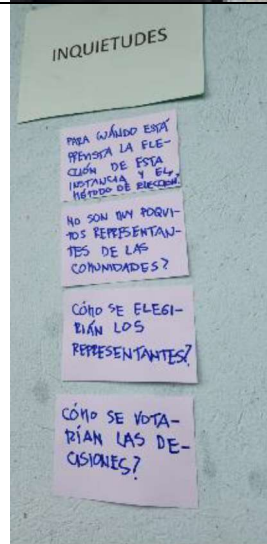 INQUIETUDES
PARA CUÁNDO ESTÁ
PREVISTA LA ELE-
CCIÓN DE ESTA
INSTANCIA Y EL
MÉTODO DE ELECCIÓN.
NO SON MUY POQUI-
TOS REPRESENTAN-
TES DE LAS
COMUNIDADES?
CÓMO SE ELEGI-
RÍAN LOS
REPRESENTANTES?
CÓMO SE VOTA-
RÍAN LAS DE-
CISIONES?